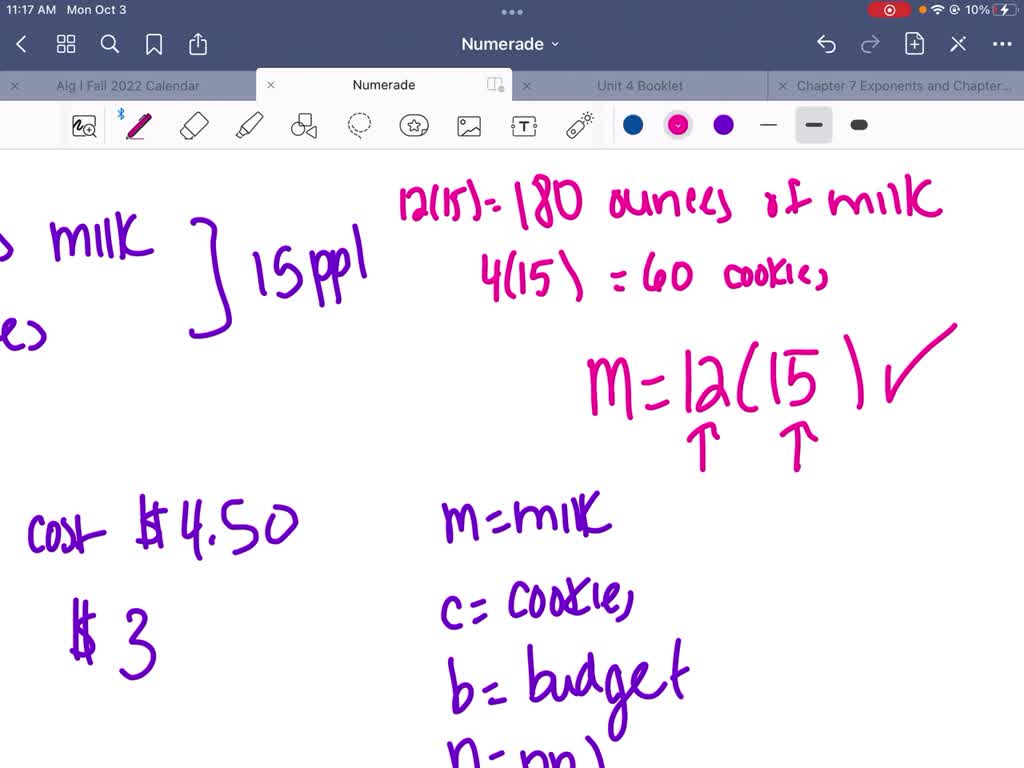 11:17 AM Mon Oct 3
10%
Numerade
Alg I Fall 2022 Calendar
Numerade
Unit 4 Booklet
Chapter 7 Exponents and Chapter...
T
12(15) = 180 ounces of milk
s milk
15 ppl
4(15) = 60 cookies
es
m = 12(15) ✓
↑ ↑
cost $4.50
m = milk
$3
c = cookies
b = budget
n = ppl